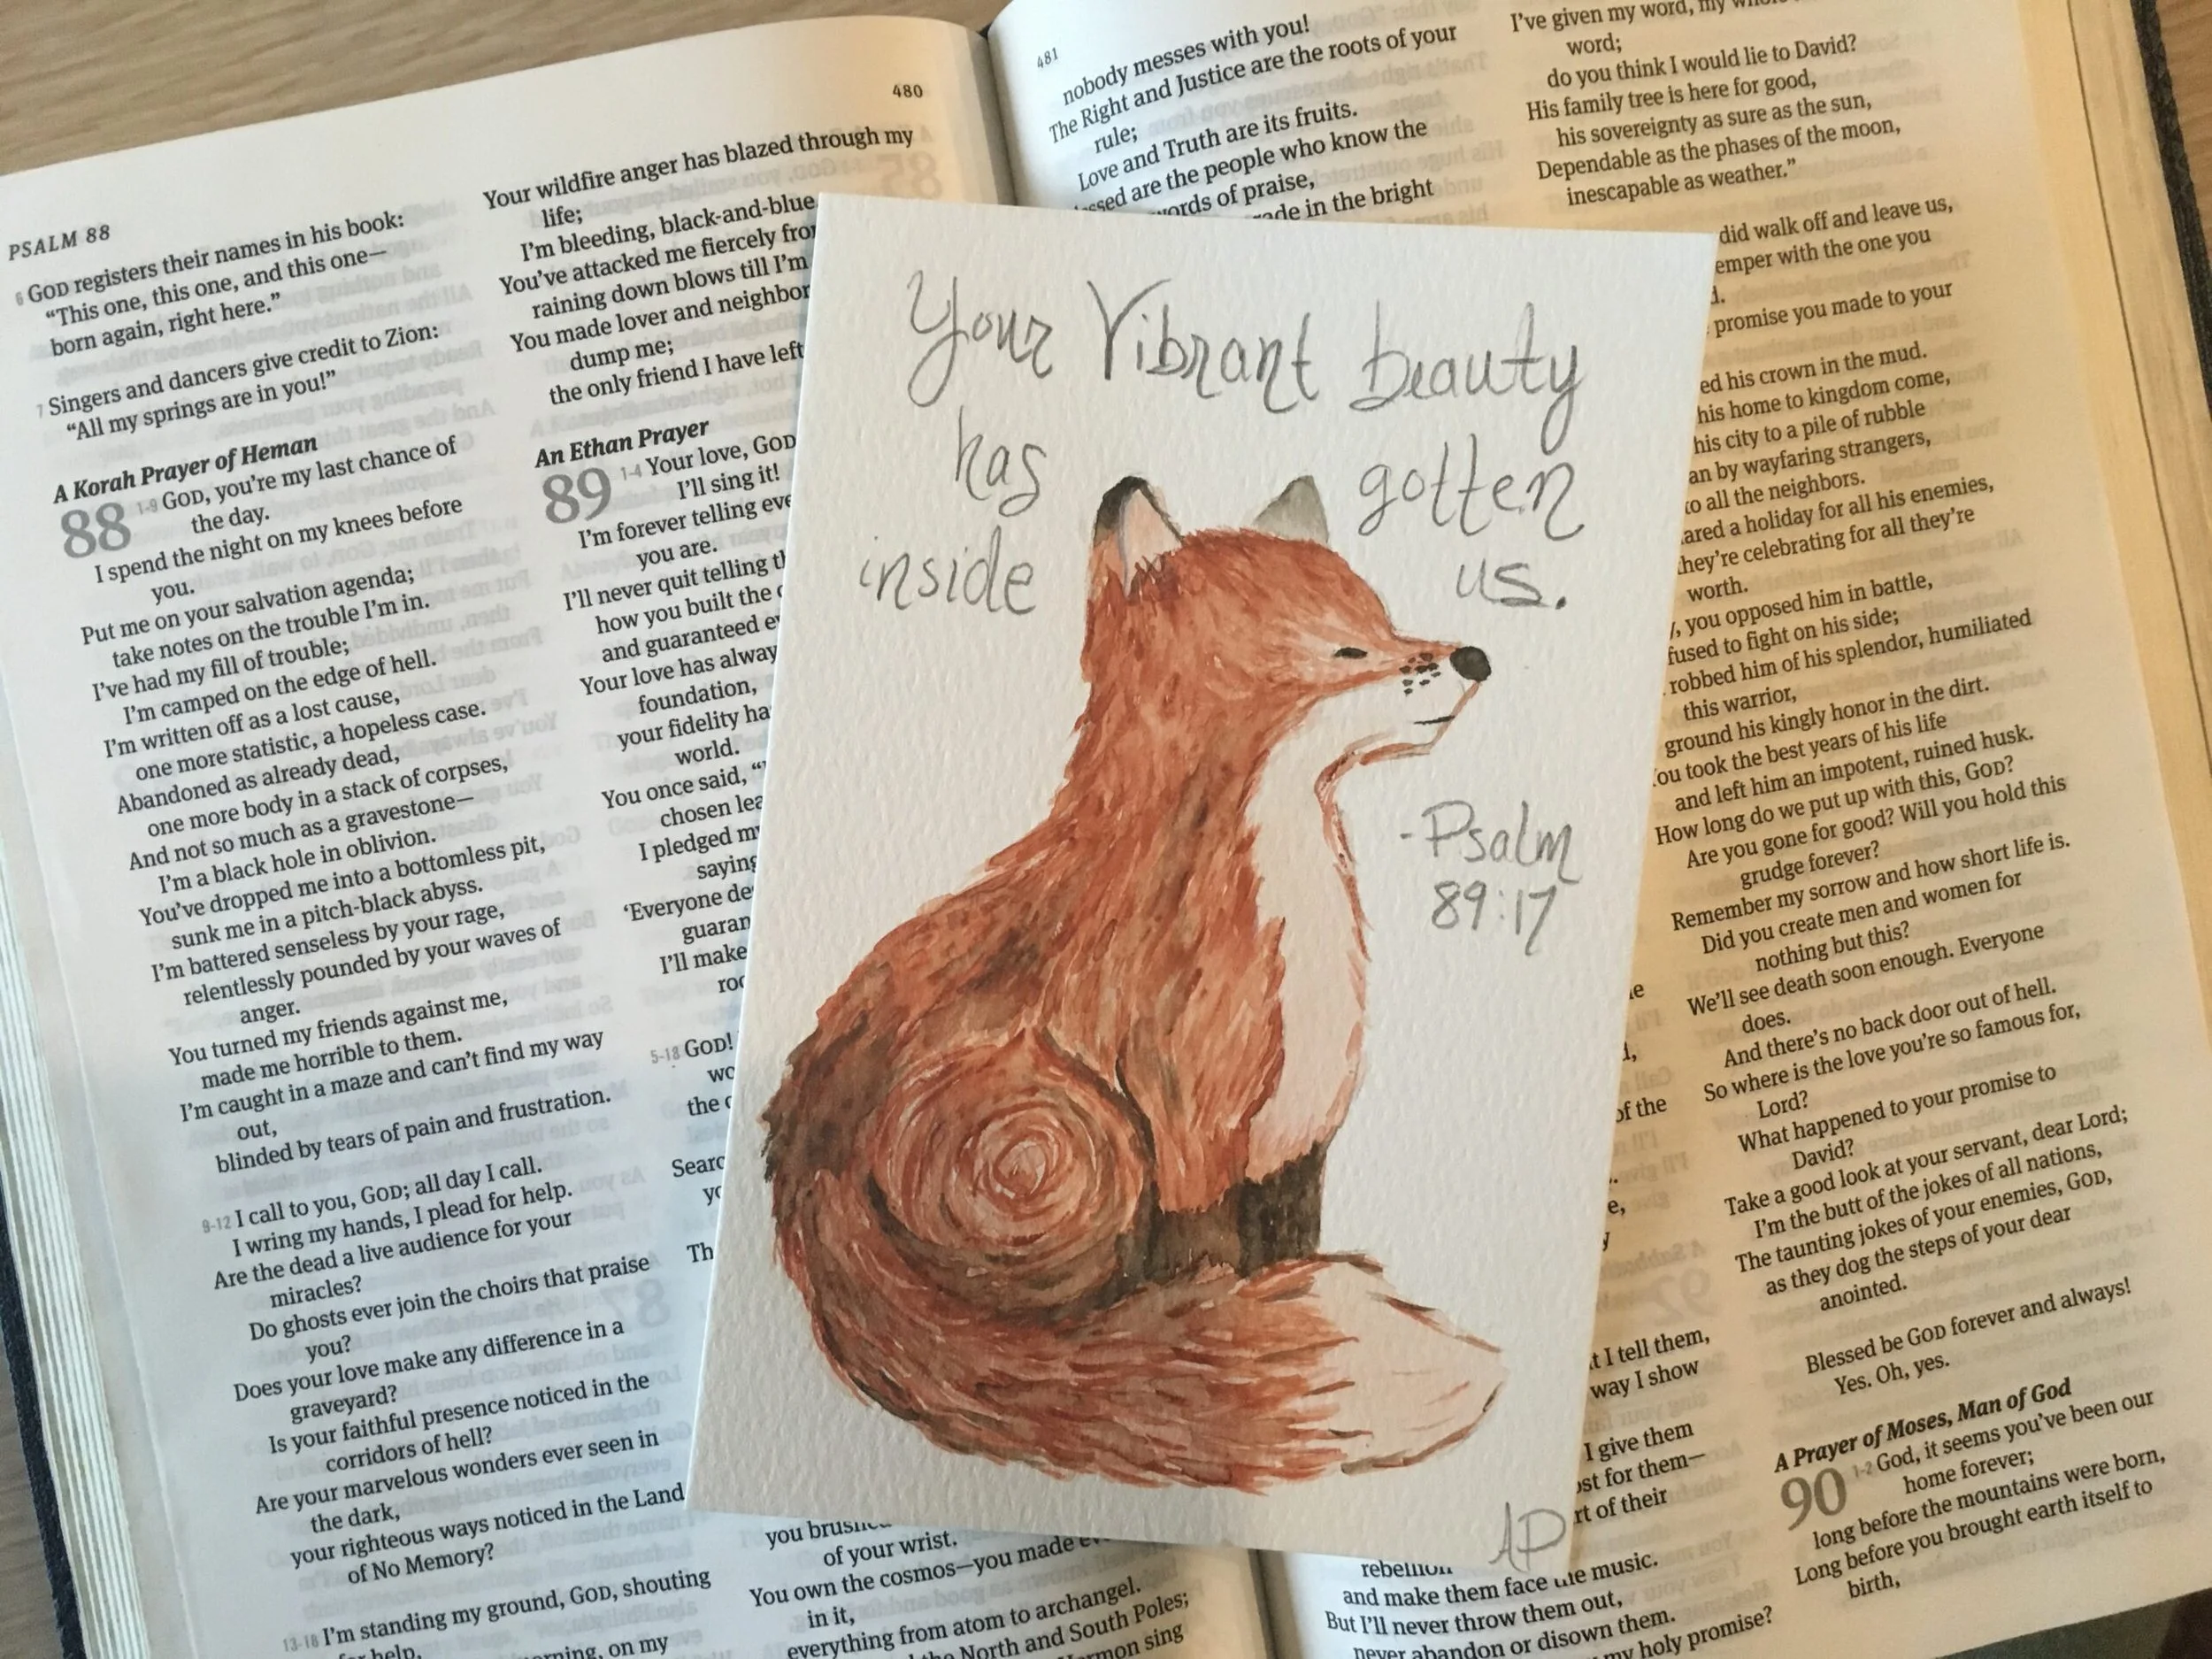 480
PSALM 88
6 GOD registers their names in his book:
“This one, this one, and this one—
born again, right here.”
7 Singers and dancers give credit to Zion:
“All my springs are in you!”
A Korah Prayer of Heman
88 1-9 GOD, you’re my last chance of
the day.
I spend the night on my knees before
you.
Put me on your salvation agenda;
take notes on the trouble I’m in.
I’ve had my fill of trouble;
I’m camped on the edge of hell.
I’m written off as a lost cause,
one more statistic, a hopeless case.
Abandoned as already dead,
one more body in a stack of corpses,
And not so much as a gravestone—
I’m a black hole in oblivion.
You’ve dropped me into a bottomless pit,
sunk me in a pitch-black abyss.
I’m battered senseless by your rage,
relentlessly pounded by your waves of
anger.
You turned my friends against me,
made me horrible to them.
I’m caught in a maze and can’t find my way
out,
blinded by tears of pain and frustration.
9-12 I call to you, GOD; all day I call.
I wring my hands, I plead for help.
Are the dead a live audience for your
miracles?
Do ghosts ever join the choirs that praise
you?
Does your love make any difference in a
graveyard?
Is your faithful presence noticed in the
corridors of hell?
Are your marvelous wonders ever seen in
the dark,
your righteous ways noticed in the Land
of No Memory?
13-18 I’m standing my ground, GOD, shouting
help,
on my
Your wildfire anger has blazed through my
life;
I’m bleeding, black-and-blue.
You’ve attacked me fiercely
raining down blows till I’m
You made lover and neighbor
dump me;
the only friend I have left
An Ethan Prayer
89 1-4 Your love, GOD
I’ll sing it!
I’m forever telling
you are.
I’ll never quit telling
how you built the
and guaranteed
Your love has
foundation,
your fidelity
world.
You once said,
chosen
I pledged
saying
‘Everyone
I’ll make
5-18 GOD!
the
you
of your wrist.
You own the cosmos—you made
in it,
everything from atom to archangel.
North and South Poles;
sing
481
nobody messes with you!
The Right and Justice are the roots of your
rule;
Love and Truth are its fruits.
are the people who know the
of praise,
in the bright
of the
rebellion
and make them face the music.
But I’ll never throw them out,
never abandon or disown them.
my holy promise?
I’ve given my word, my
word;
do you think I would lie to David?
His family tree is here for good,
his sovereignty as sure as the sun,
Dependable as the phases of the moon,
inescapable as weather.”
did walk off and leave us,
with the one you
promise you made to your
his crown in the mud.
his home to kingdom come,
his city to a pile of rubble
by wayfaring strangers,
to all the neighbors.
a holiday for all his enemies,
they’re celebrating for all they’re
worth.
you opposed him in battle,
to fight on his side;
robbed him of his splendor, humiliated
this warrior,
ground his kingly honor in the dirt.
You took the best years of his life
and left him an impotent, ruined husk.
How long do we put up with this, GOD?
Are you gone for good? Will you hold this
grudge forever?
Remember my sorrow and how short life is.
Did you create men and women for
nothing but this?
We’ll see death soon enough. Everyone
does.
And there’s no back door out of hell.
So where is the love you’re so famous for,
Lord?
What happened to your promise to
David?
Take a good look at your servant, dear Lord;
I’m the butt of the jokes of all nations,
The taunting jokes of your enemies, GOD,
as they dog the steps of your dear
anointed.
Blessed be GOD forever and always!
Yes. Oh, yes.
A Prayer of Moses, Man of God
90 1-2 God, it seems you’ve been our
home forever;
long before the mountains were born,
Long before you brought earth itself to
birth,
I tell them,
way I show
I give them
for them—
of their
Your Vibrant beauty
has gotten
inside us.
-Psalm
89:17
AD